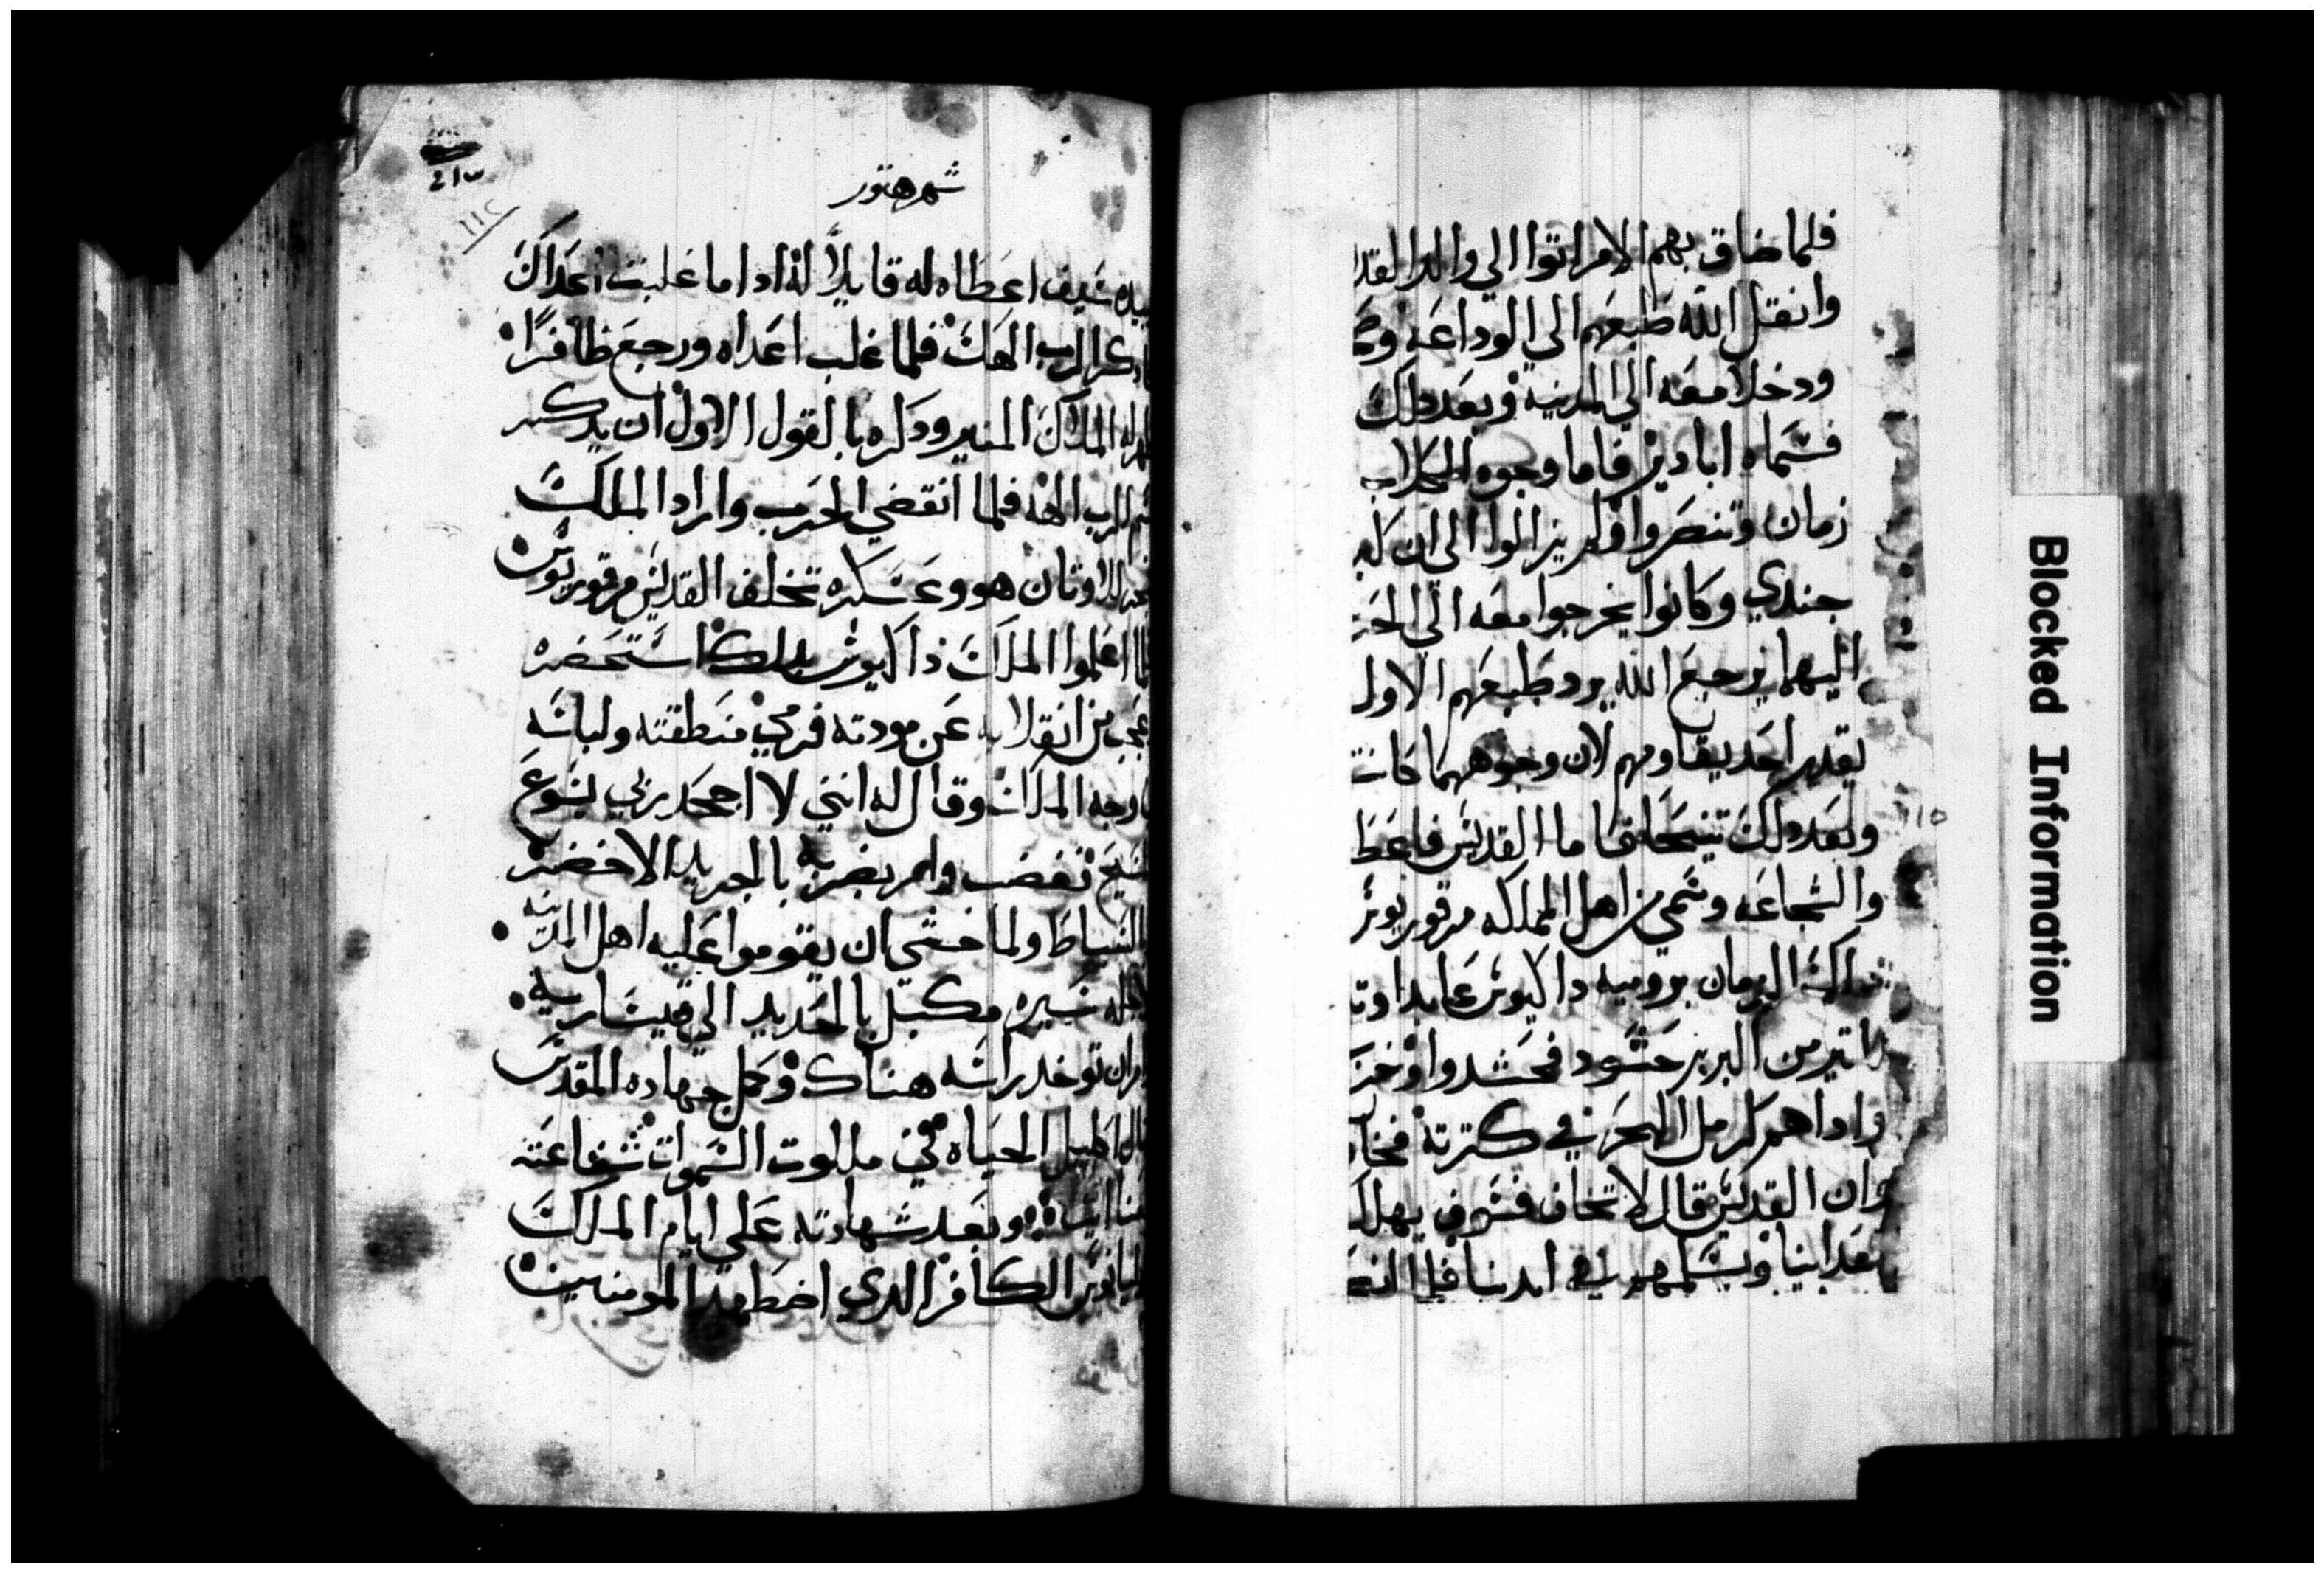 فلما ضاق بهم الامر اتوا الي والد القد
وانتقل الله طبعهم الي الوداعه
ودخلا معه الي المدينه وبعد دلك
فسماه اباديز فاما وجوه الكلاب
زمان وتنصروا ولم يزالوا الي ان
جندي وكانوا يخرجوا معه الي الحر
اليهما يرجع الله يرد طبعهم الاول
يقدر احد يقاومهم لان وجوههما كانت
وبعد دلك تنيحا فاما القديس فاعط
والشجاعه وسمي من اهل المملكه مرقوريوس
دلك الزمان بروميه داكيوس عابد اوت
من البربر حشود فحشدوا
وادا هم كرمل البحر في كترته فخا
وان القديس قال لا تخاف فسوف يهلك
اعداينا ويسلمهم في ايدينا فلما انه
Blocked Information
شهر هتور
بيده سيف اعطاه له قايلاً له ادا ما غلبت اعداك
ادكر الرب الهك فلما غلب اعداه ورجع ظافرًا
ظهر له الملاك المنير ودكره بالقول الاول ان يدكر
اسم الرب الهه فلما انقضي الحرب واراد الملك
للاوثان هو وعساكره تخلف القديس مرقوريوس
اعلموا الملك داكيوس بدلك استحضره
وعجب من انقلابه عن مودته فرمي منطقته ولباسه
وجه الملك وقال له انني لا اجحد ربي يسوع
المسيح فغضب وامر بضربه بالجريد الاخضر
والسياط ولما خشي ان يقوموا عليه اهل المدينه
لاجله سيره مكبل بالحديد الي قيساريه
وامر ان توخد راسه هناك وكمل جهاده المقدس
ونال اكليل الحياه في ملكوت السموات شفاعته
معنا امين وبعد شهادته علي ايام الملك
ليانوس الكافر الدي اضطهد المومنين